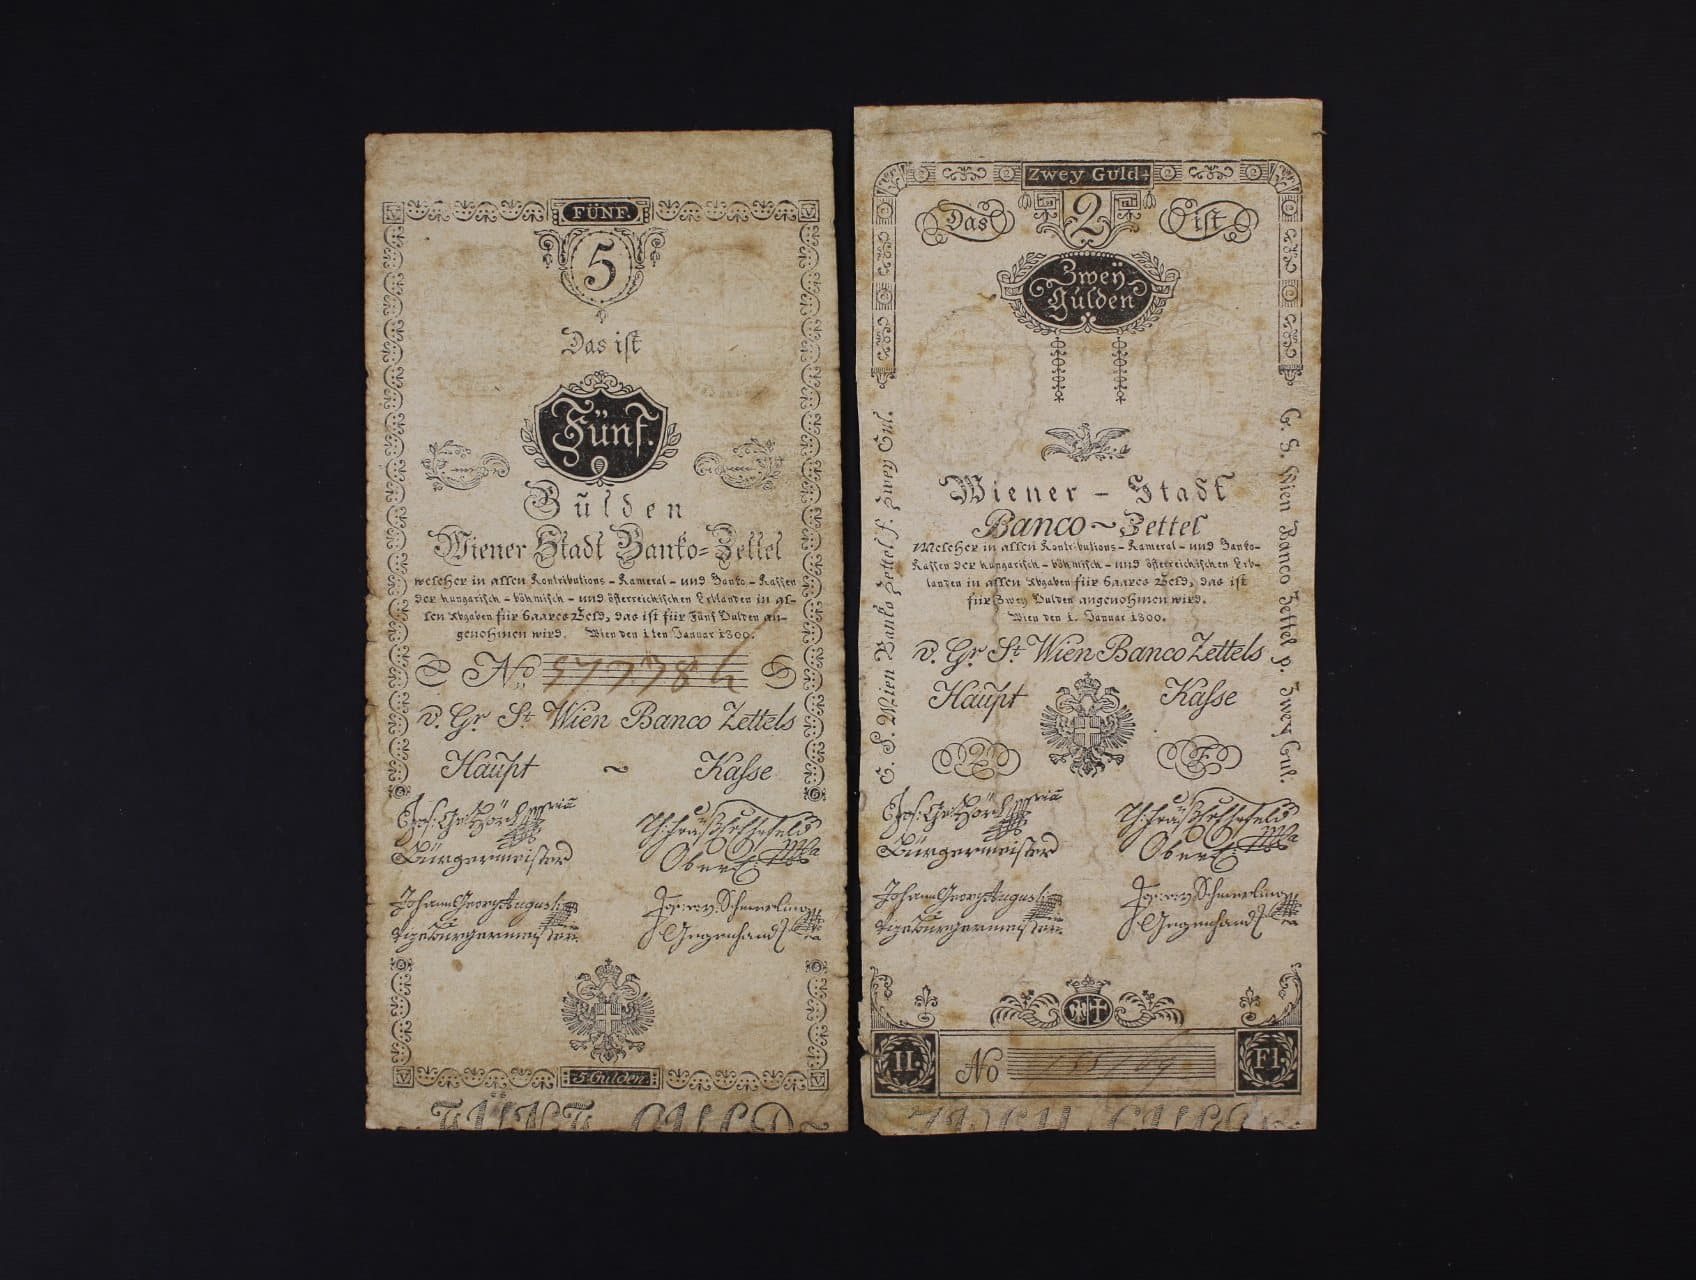 FÜNF.
5
Das ist
Fünf.
Gulden
Wiener Stadt Banko=Zettel
welcher in allen Kontributions - Kameral - und Banko - Kassen
der hungarisch - böhmisch - und österreichischen Erblanden in al-
len Abgaben für baares Geld, das ist für Fünf Gulden an-
genohmen wird. Wien den 1ten Januar 1800.
No 57778
v. Gr. St. Wien Banco Zettels
Haupt ~ Kasse
Bürgermeister
Johann Georg Augusti
Vizebürgermeister
5 Gulden.
FÜNF GULD
Zwey Guld-
Das 2 ist
Zweÿ
Gulden
Wiener - Stadt
Banco ~ Zettel
Welcher in allen Kontributions - Kameral - und Banko-
Kassen der hungarisch - böhmisch - und österreichischen Erb-
landen in allen Abgaben für baares Geld, das ist
für Zwey Gulden angenohmen wird.
Wien den 1. Januar 1800.
v. Gr. St. Wien Banco Zettels
Haupt Kasse
2 F
Bürgermeister
Johann Georg Augusti
Vizebürgermeister
G. S. Wien Banko Zettel f. Zwey Gul.
G. S. Wien Banco Zettel p. Zwey Gul.
II. No Fl.